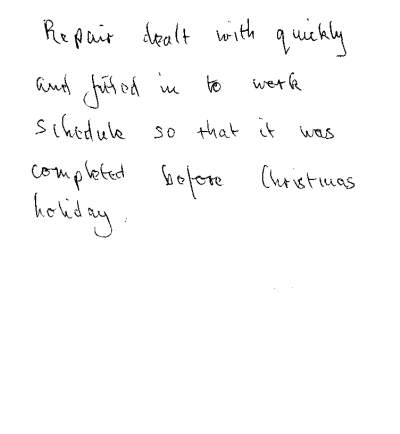 Repair dealt with quickly
and fitted in to work
schedule so that it was
completed before Christmas
holiday.